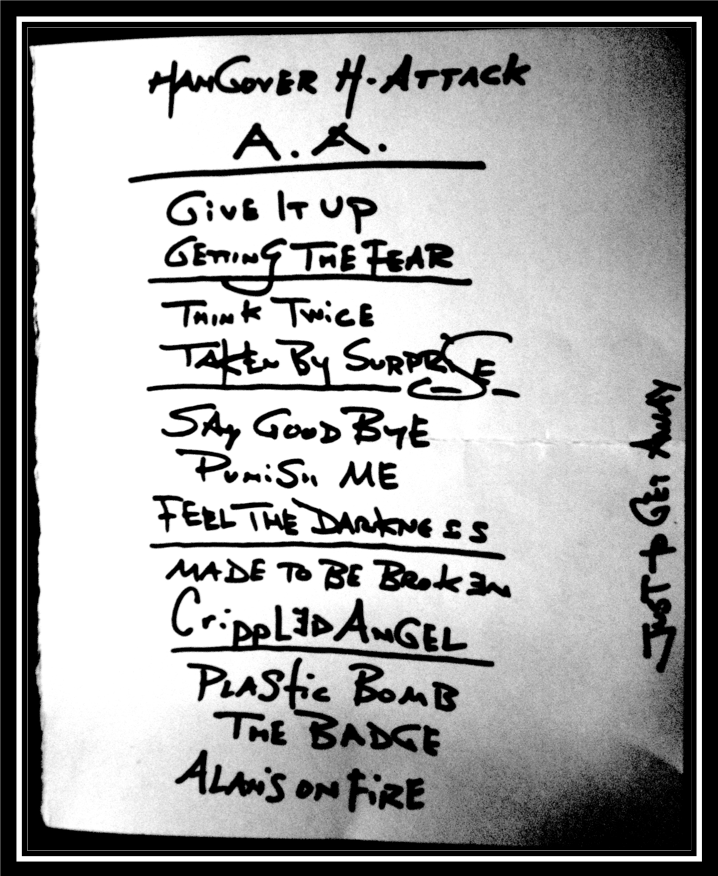 HANGOVER H-ATTACK
A.A.
GIVE IT UP
GETTING THE FEAR
THINK TWICE
TAKEN BY SURPRISE
SAY GOOD BYE
PUNISH ME
FEEL THE DARKNESS
MADE TO BE BROKEN
CRIPPLED ANGEL
PLASTIC BOMB
THE BADGE
ALAN'S ON FIRE
JUST to GET AWAY